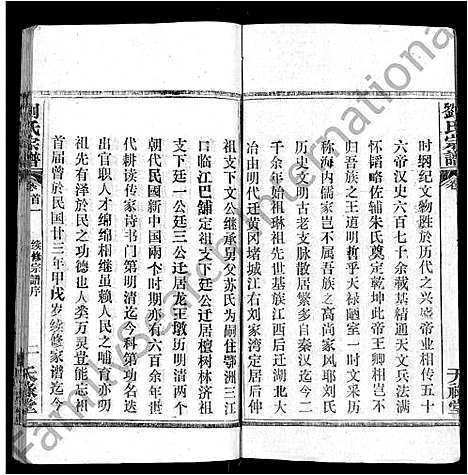 劉氏宗譜
天祿堂
时纲纪文物胜於历代之兴盛帝业相传五十
六帝汉史六百七十余载基精通天文兵法满
怀韬略佐辅朱氏奠定乾坤此帝王卿相岂不
归吾族之王道明哲乎天禄颐室一时文史共
称海内儒家岂不属吾族之高尚家风耶刘氏
历史文明古老支脉散居繁多自秦汉迄今二
千余年始祖琳祖先世基族江西后迁湖北大
冶由明代迁黄冈堵城江右刘家湾定居后仲
祖支下文公继承舅父苏氏为嗣住鄂洲三江
口临江巴铺定祖支下廷公迁居檀树林济祖
支下廷一公廷三公迁居龙王墩历明清两个
朝代民国新中国两个时期亦有六百余年耿
代耕读传家诗书门第明清迄今科第功名迭
出官职人才绵绵相继虽赖人民之哺育亦叨
祖先有泽於民之功德也人类万灵岂能忘祖
首届曾於民国廿三年甲戌岁续修家谱迄今
劉氏宗譜
卷首一
续修宗譜序
一
天祿堂
FamilySearch International